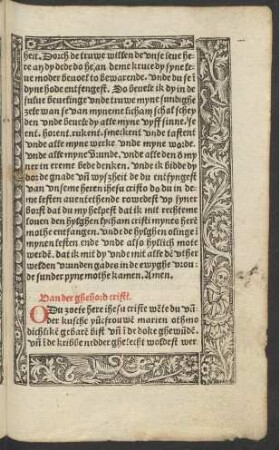 heit. Dorch de truwe willen de vnse leue he
re an dy dede do he an deme kruce dy syne leue
moder beuoel to bewarende. vnde du se in
dyne hode entfengest. So beuele ik dy in de
sulue beuelinge vnde truwe myne sundighe
zele wan se van myneme licham schal schey
den vnde beuele dy alle myne vyff sinne. se
ent. horent. rukent. smeckent vnde tastent
vnde alle myne werke vnde myne worde.
vnde alle myne vrunde. vnde alle den ō my
ner in trente bede denken. vnde ik bidde dy
dor de gnade vn̄ wyszheit de du entfyngest
van vnseme heren ihesu cristo do du in de
me lesten auentethende rowedest vp syner
borst dat du my helpest dat ik mit rechteme
louen den hylghen lycham cristi myneß herē
mothe entfangen. vnde de hylghen olinge ī
mynen lesten ende vnde also hyllich mote
werdē. dat ik mit dy vnde mit alle dē vther
welden vrunden gades in de ewyghe vrou
de sunder pyne mothe kamen. Amen.
Van der ghebord cristi.
O Du zoete here ihesu criste wēte du vā
der kusche yūcfrouwē marien othmo
dichlikē gebarē bist vn̄ ī de doke ghewūdē.
vn̄ ī de kribbe nedder ghelecht woldest wer